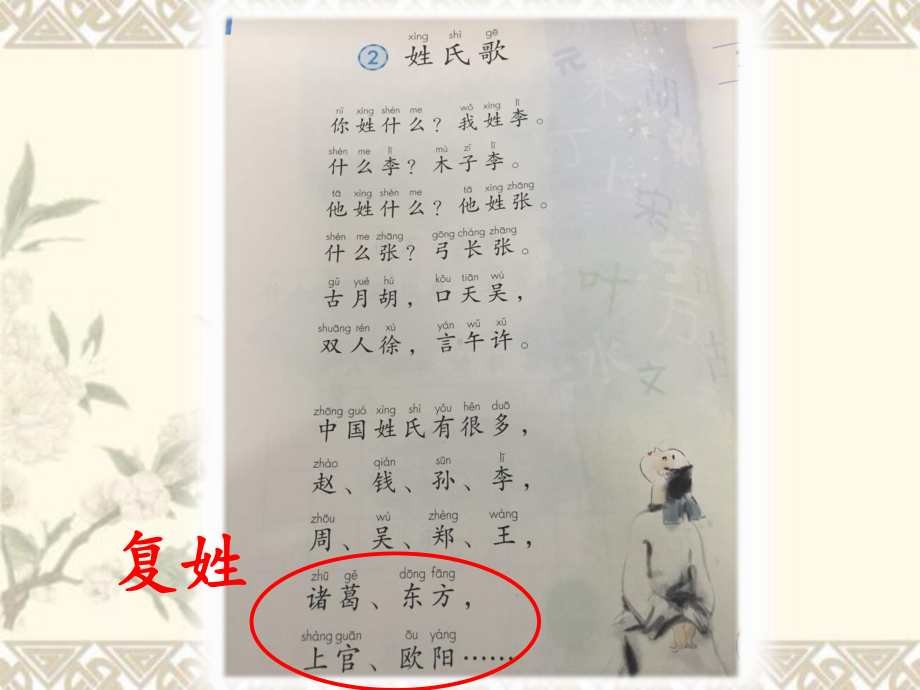 xìng shì gē
② 姓氏歌
nǐ xìng shén me wǒ xìng lǐ
你姓什么？我姓李。
shén me lǐ mù zǐ lǐ
什么李？木子李。
tā xìng shén me tā xìng zhāng
他姓什么？他姓张。
shén me zhāng gōng cháng zhāng
什么张？弓长张。
gǔ yuè hú kǒu tiān wú
古月胡，口天吴，
shuāng rén xú yán wǔ xǔ
双人徐，言午许。
zhōng guó xìng shì yǒu hěn duō
中国姓氏有很多，
zhào qián sūn lǐ
赵、钱、孙、李，
zhōu wú zhèng wáng
周、吴、郑、王，
复姓
zhū gě dōng fāng
诸葛、东方，
shàng guān ōu yáng
上官、欧阳……
元
胡
张
宋
叶
水
方
文
古